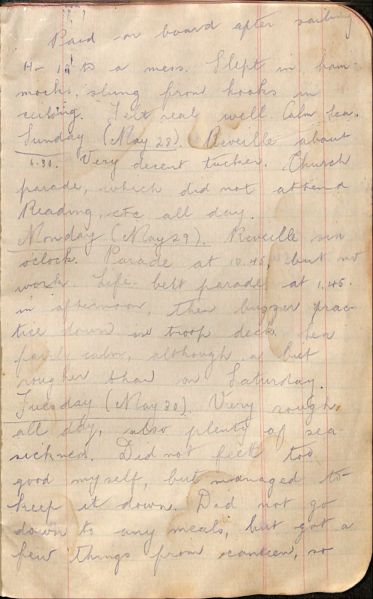 Paid on board after sailing
to a mess. Slept in ham-
mocks, slung from hooks in
ceiling. Felt real well. Calm sea.
Sunday (May 28). Reveille about
6.30. Very decent tucker. Church
parade, which did not attend
Reading, etc all day.
Monday (May 29). Reveille six
oclock. Parade at 10.45, but no
work. Life belt parade at 1.45.
in afternoon, then bugger prac-
tice down in troop deck. Sea
fairly calm, although a bit
rougher than on Saturday.
Tuesday (May 30). Very rough
all day, also plenty of sea-
sickness. Did not feel too
good myself, but managed to
keep it down. Did not go
down to any meals, but got a
few things from canteen, so